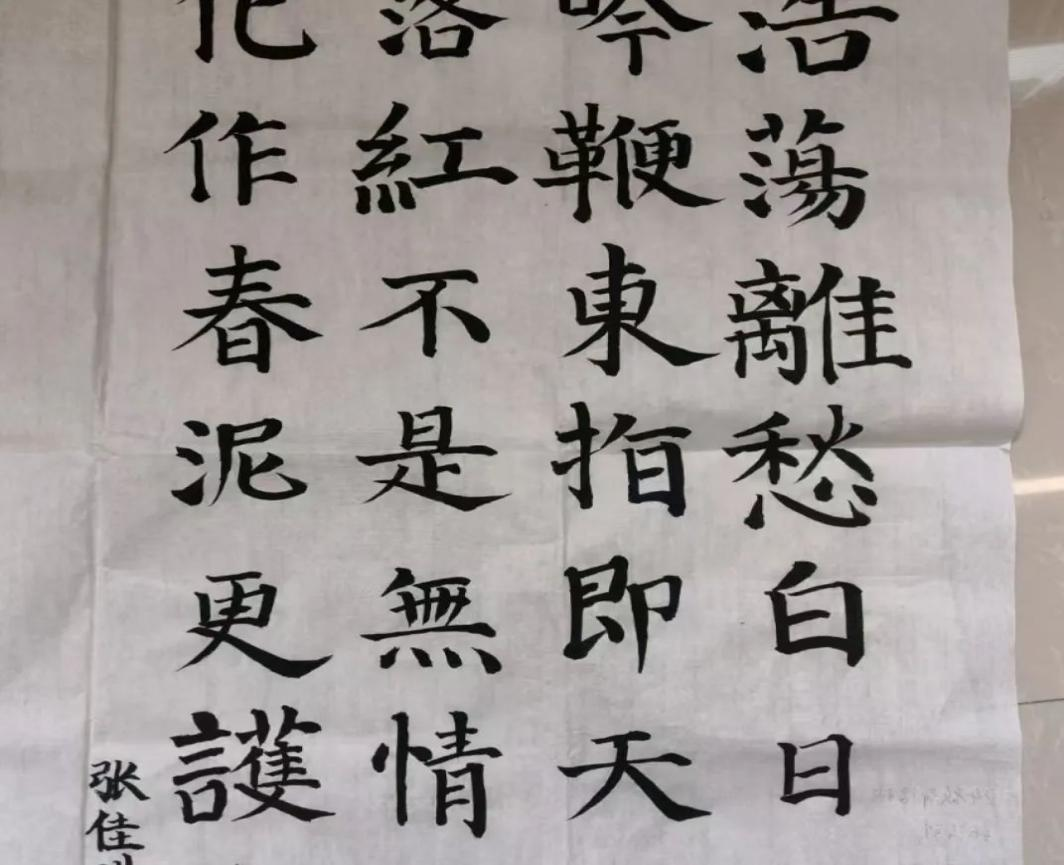 浩蕩離愁白日
吟鞭東指即天
落紅不是無情
化作春泥更護
张佳